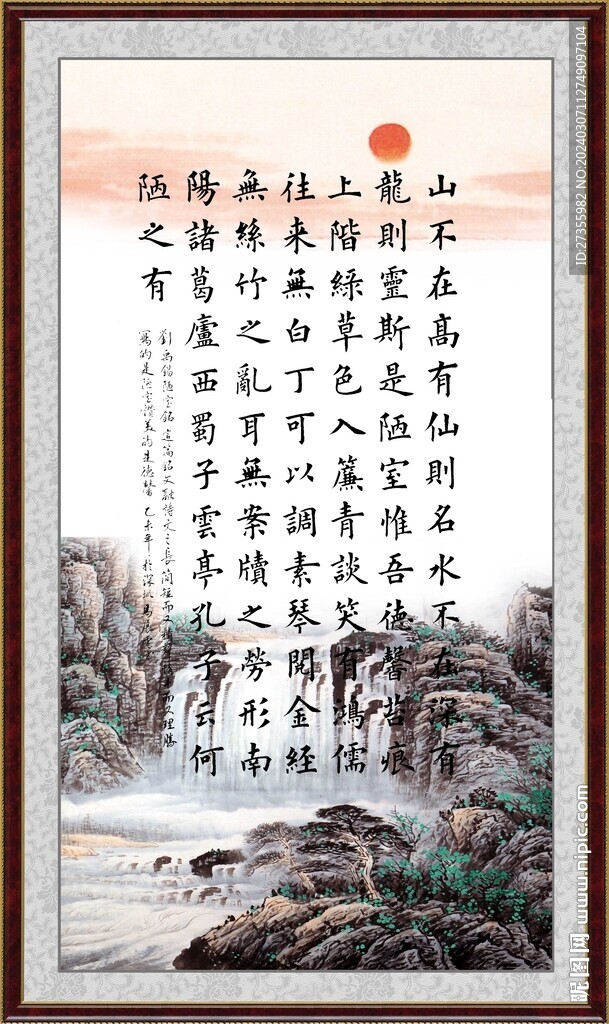 山不在高有仙則名水不在深有
龍則靈斯是陋室惟吾德馨苔痕
上階綠草色入簾青談笑有鴻儒
往来無白丁可以調素琴閱金経
無絲竹之亂耳無案牘之勞形南
陽諸葛廬西蜀子雲亭孔子云何
陋之有
劉禹錫陋室銘 這篇銘文融詩文之長 簡短而又
寫的是陋室讚美的是德馨 乙未年 於深圳
ID:27355982 NO:20240307112749097104
昵图网 www.nipic.com